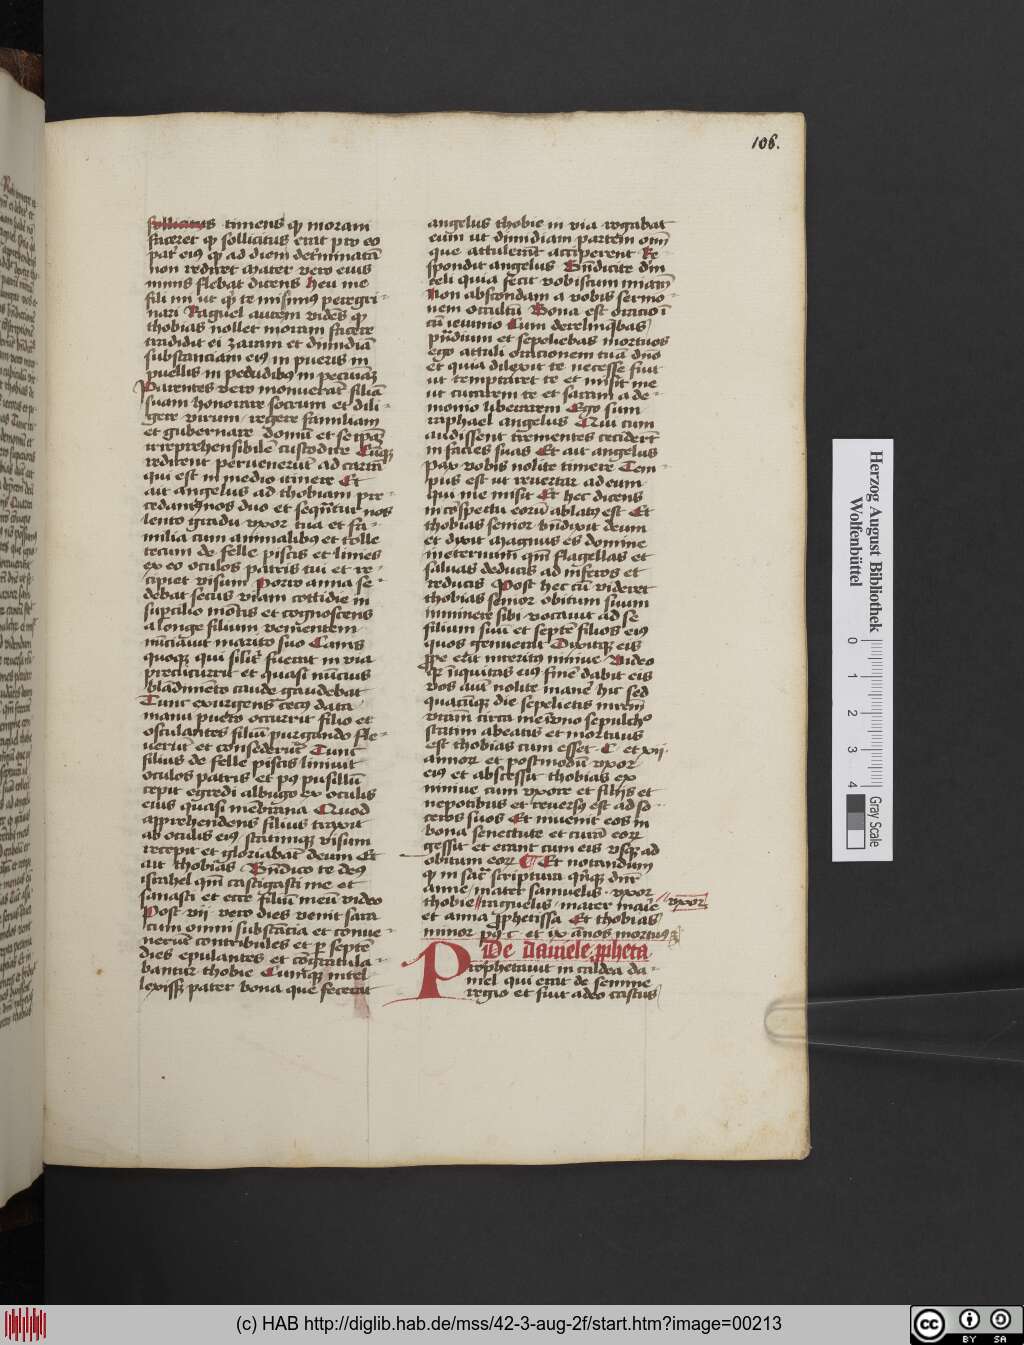 106.
sollicitus timens qꝫ moram
faceret qꝫ sollicitus erat pro eo
pat̄ eiꝰ qꝫ ad diem det̄minatā
non rediret Mater vero eius
flebat dicens Heu me
fili mi ut qꝫ te misimꝰ peregri-
nari Raguel autem videns qꝫ
thobias nollet moram facere
tradidit ei zaram et dimidiā
substantiam eiꝰ in pueris in
puellis in pecudibꝰ in pecunijs
Parentes vero monuerūt filiā
suam honorare socrum et dili-
gere virum regere familiam
et gubernare domū et se ipā
irreprehensibilē custodire Cūqꝫ
redirent peruenerūt ad carrā
qui est in medio itinere Et
ait angelus ad thobiam pre-
cedamꝰ nos duo et seqūtur nos
lento gradu vxor tua et fa-
milia cum animalibꝰ et tolle
tecum de felle piscis et linies
ex eo oculos patris tui et re-
cipiet visum Porro anna se-
debat secus viam cottidie in
supcilio mōtis et cognoscens
a longe filium venientem
nūciauit marito suo Canis
quoqꝫ qui silr̄ fuerat in via
precucurrit et quasi nūcius
blādimēto caude gaudebat
Tunc exurgens cecꝰ data
manu puero occurrit filio et
osculantes filiū purgando fle-
uerūt et consederūt Tunc
filius de felle piscis liniuit
oculos patris et pꝰ pusillū
cepit egredi albugo ex oculis
eius quasi mēbrana Quod
apprehendens filius traxit
ab oculis eiꝰ statimqꝫ visum
recepit et gloriabāt deum Et
ait thobias Bn̄dico te deꝰ
israhel qm̄ castigasti me et
sanasti et ecce filiū meū video
Post vii vero dies venit sara
cum omni substācia et conue-
nerūt contribules et ꝑ septē
dies epulantes et cōgratula-
bantur thobie Cumqꝫ intel
lexissꝫ pater bona que fecerat
angelus thobie in via rogabat
eum ut dimidiam partem om̄
que attulerūt acciperent Re-
spondit angelus Bn̄dicite dm̄
celi quia fecit vobiscum miam̄
Non abscondam a vobis sermo-
nem occultū Bona est oracio ī
cū ieiunio Cum derelinqbas
pn̄dium et sepeliebas mortuos
ego attuli orationem tuā dn̄o
et quia dilexit te necesse fuit
ut temptaret te et misit me
ut curarem te et saram a de-
monio liberarem Ego sum
raphael angelus Qui cum
audissent trementes cecidert̄
in facies suas Et ait angelus
pax vobis nolite timere Tem-
pus est ut reuertar ad eum
qui me misit Et hec dicens
in cōspectu eorū ablatꝰ est Et
thobias senior bn̄dixit deum
et dixit Magnus es domine
in eternum qm̄ flagellas et
saluas deducis ad inferos et
reducis Post hec cū videret
thobias senior obitum suum
iminere sibi vocauit ad se
filium suū et septē filios eiꝰ
quos genuerat Dixitqꝫ eis
ꝓpe erit interitꝰ niniue Video
qꝫ īiquitas eiꝰ finē dabit eis
vos autē nolite manē hic sed
quacūqꝫ die sepelietis mrem̄
vrām circa me ī vno sepulchᵒ
statim abeatis et mortuus
est thobias cum esset · C · et xii·
annoꝝ et postmodū vxor
eiꝰ et abscessit thobias ex
niniue cum vxore et filijs et
nepotibus et reuersꝰ est ad so-
ceros suos Et inuenit eos in
bona senectute et curā eoꝝ
gessit et erant cum eis vsqꝫ ad
obitum eoꝝ ¶ Et notandum
qꝫ in sac̄ scriptura qn̄qꝫ dnr̄
anne mater samuelis · vxor
thobie // raguelis · mater marie // vxor
et anna ꝓphetissa Et thobias
minor pꝰ · c · et ix ānos mortuꝰ ē
De daniele ꝓpheta
Prophetauit in caldea da-
niel qui erat de semine
regio et fuit adeo castus
Herzog August Bibliothek
Wolfenbüttel
0 1 2 3 4
Gray Scale
(c) HAB http://diglib.hab.de/mss/42-3-aug-2f/start.htm?image=00213
cc BY SA